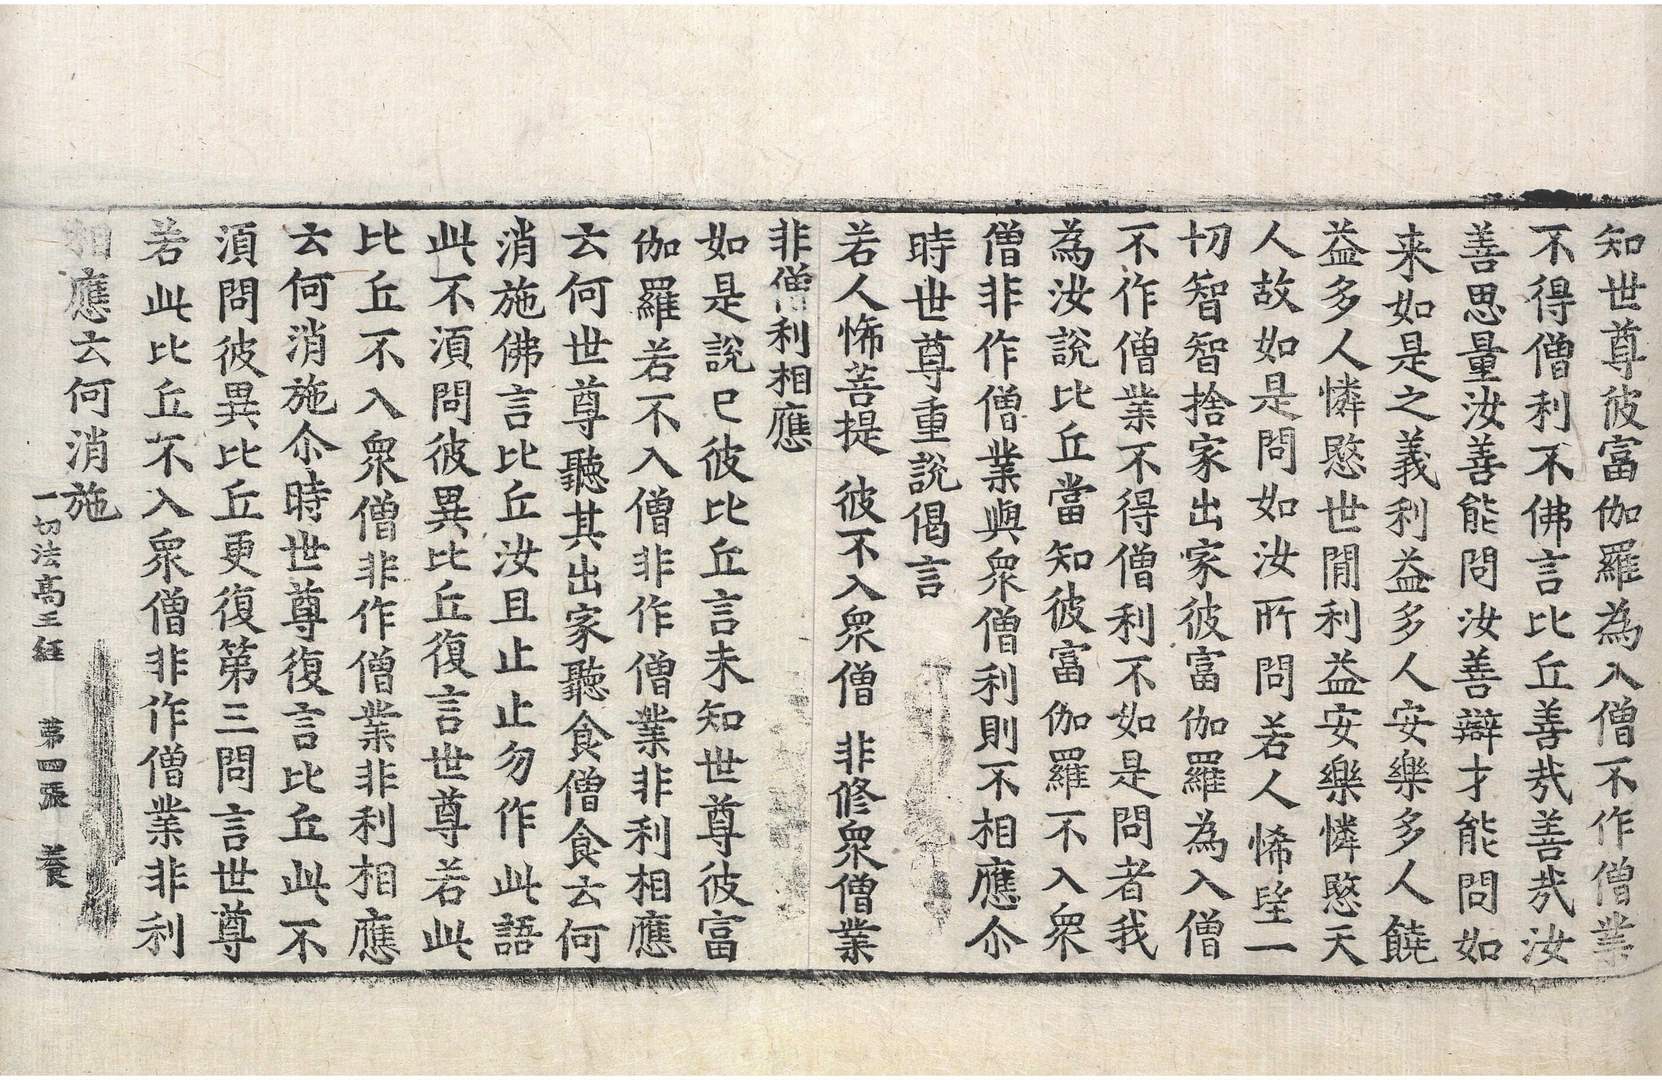 知世尊彼富伽羅為入僧不作僧業
不得僧利不佛言比丘善㢤善㢤汝
善思量汝善能問汝善辯才能問如
来如是之義利益多人安樂多人饒
益多人憐愍世閒利益安樂憐愍天
人故如是問如汝所問若人悕望一
切智智捨家出家彼富伽羅為入僧
不作僧業不得僧利不如是問者我
為汝說比丘當知彼富伽羅不入衆
僧非作僧業與衆僧利則不相應尒
時世尊重說偈言
若人悕菩提 彼不入衆僧 非修衆僧業
非僧利相應
如是說已彼比丘言未知世尊彼富
伽羅若不入僧非作僧業非利相應
云何世尊聽其出家聽食僧食云何
消施佛言比丘汝且止止勿作此語
此不湏問彼異比丘復言世尊若此
比丘不入衆僧非作僧業非利相應
云何消施尒時世尊復言比丘此不
湏問彼異比丘更復第三問言世尊
若此比丘不入衆僧非作僧業非利
相應云何消施
一切法高王經 第四張 養